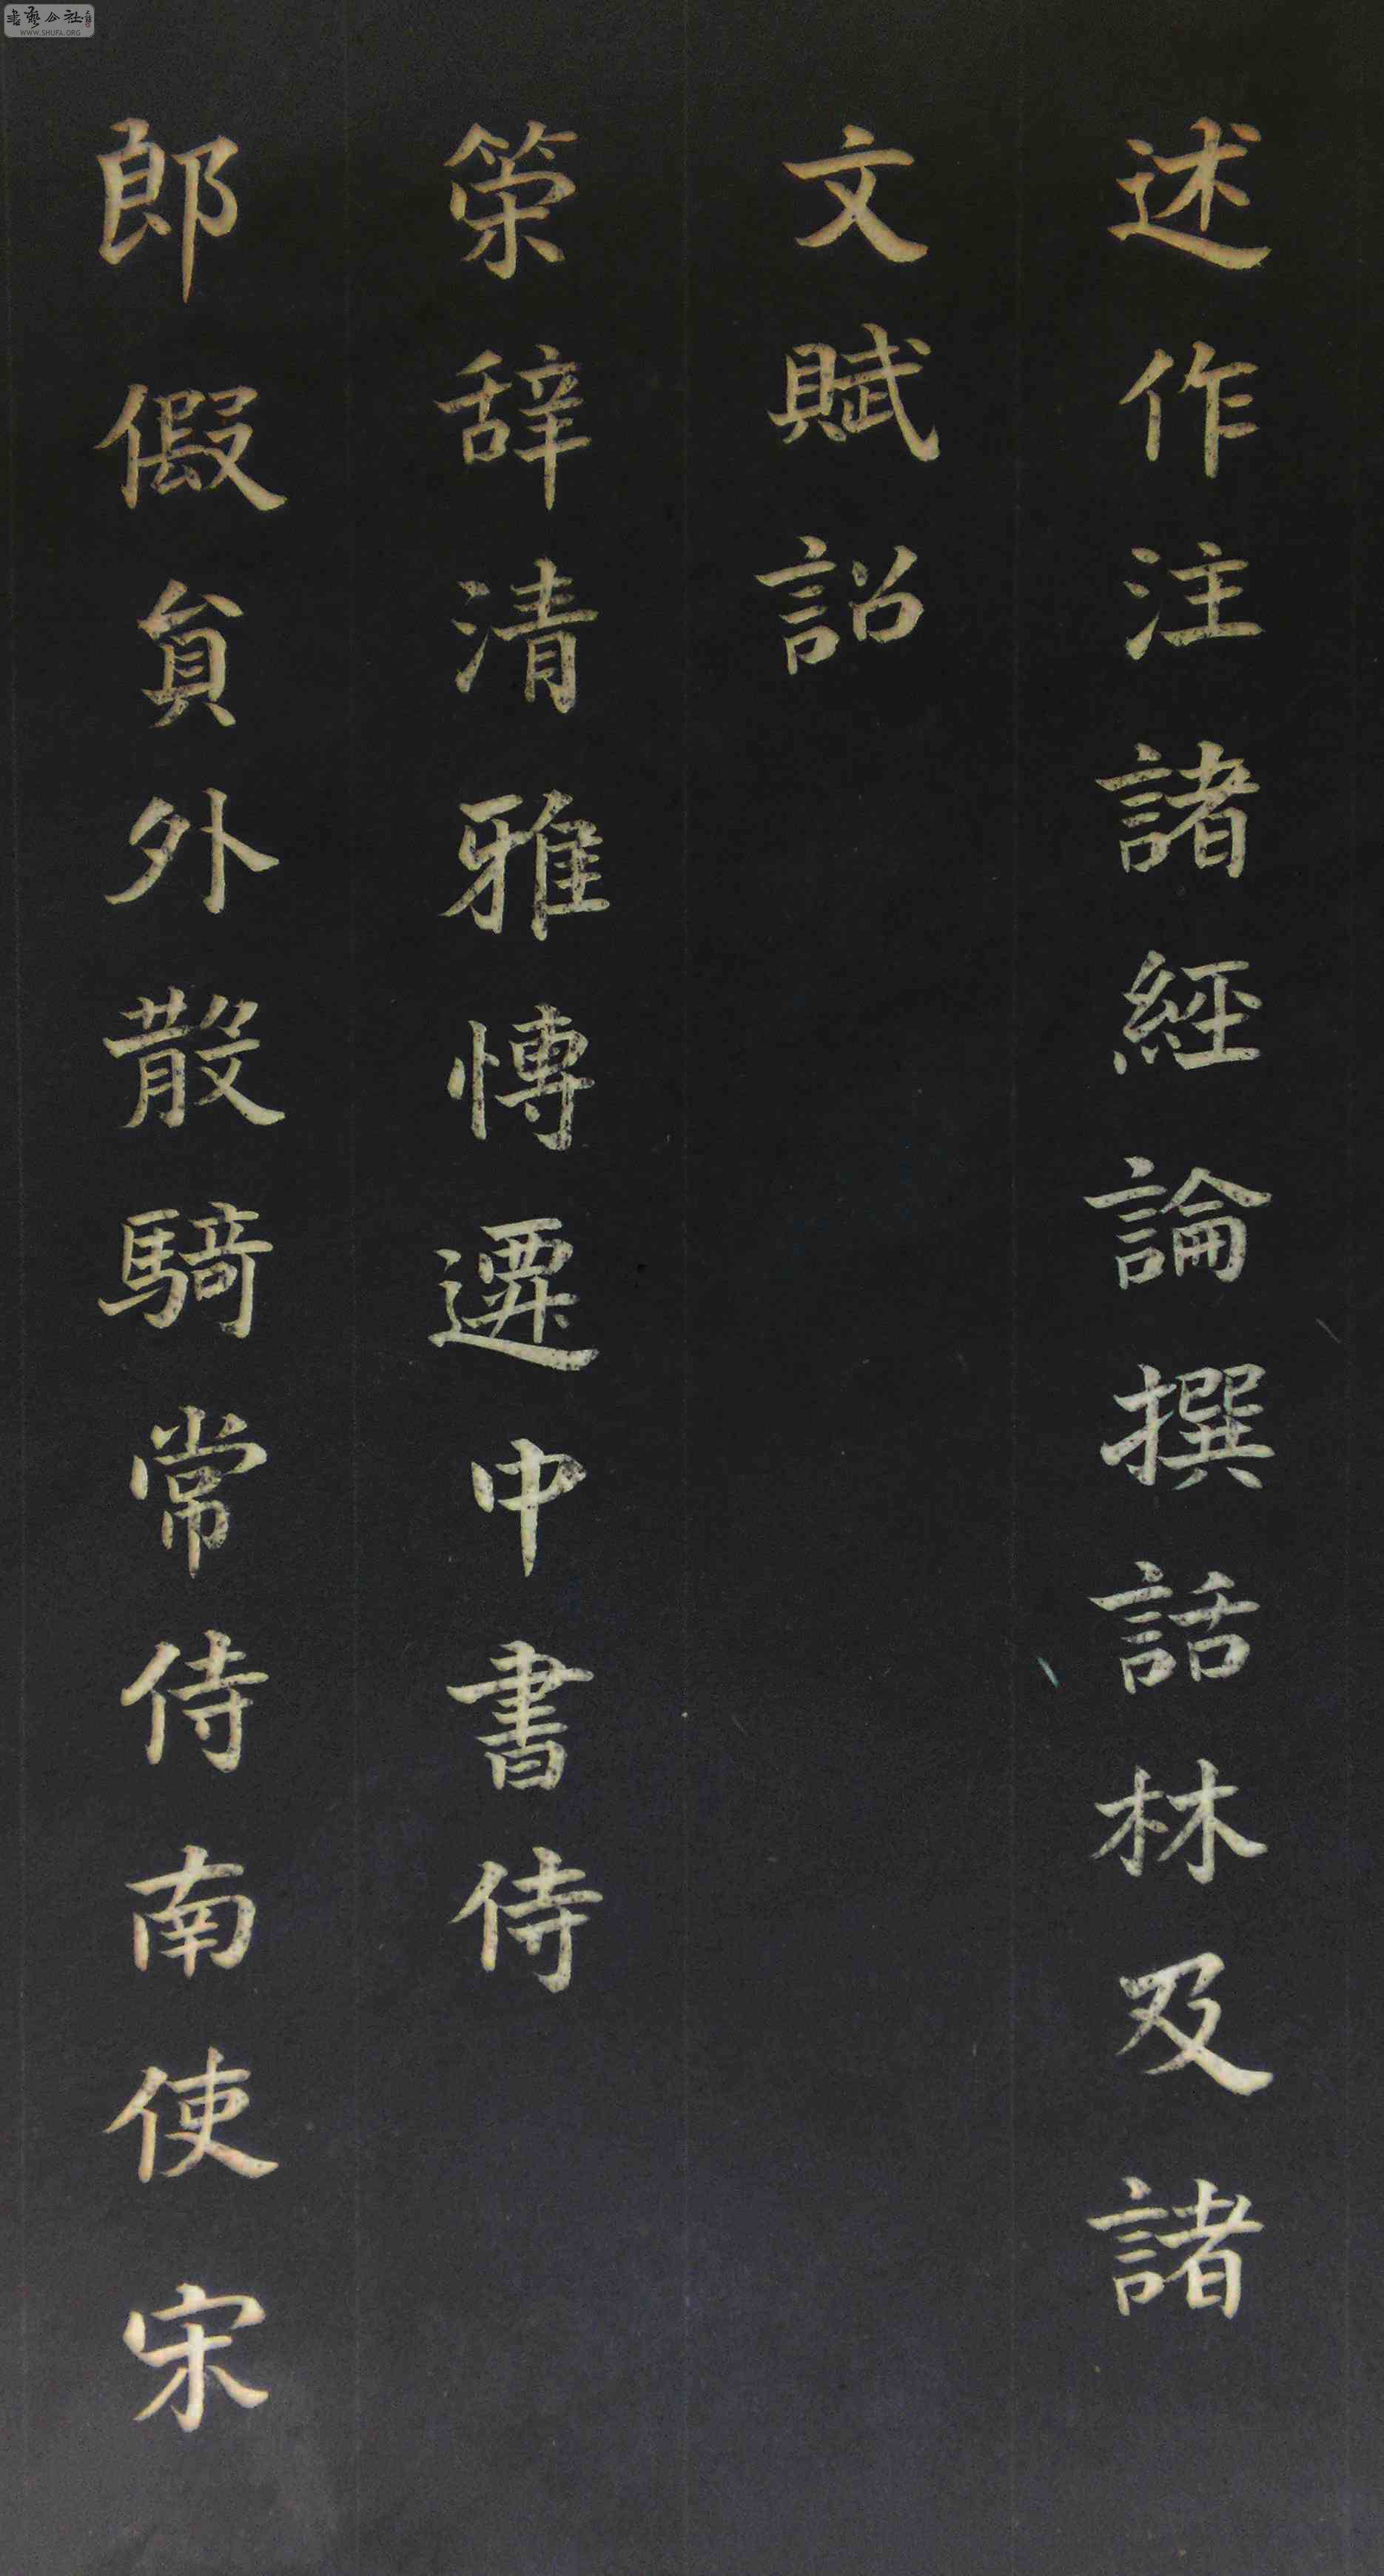 述作注諸經論撰話林及諸
文賦詔
策辞清雅博遷中書侍
郎假貟外散騎常侍南使宋
書藝公社
WWW.SHUFA.ORG